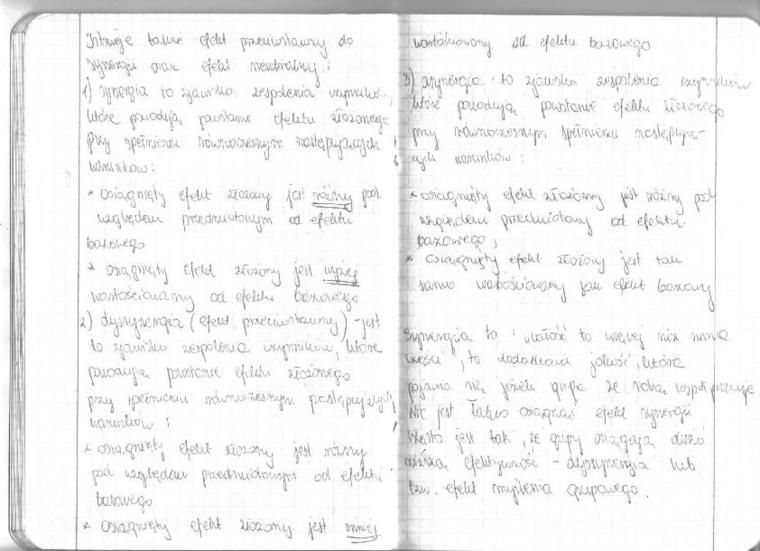 Istnieje także efekt przeciwstawny do
synergii oraz efekt neutralny:
1) synergia to zjawisko zespolenia czynników,
które powodują powstanie efektu złożonego
przy spełnieniu równoczesnym następujących
warunków:
* osiągnięty efekt złożony jest różny pod
względem przedmiotowym od efektu
bazowego
* osiągnięty efekt złożony jest wyżej
wartościowany od efektu bazowego
2) dyssynergia (efekt przeciwstawny) - jest
to zjawisko zespolenia czynników, które
powodują powstanie efektu złożonego
przy spełnieniu równoczesnym następujących
warunków:
* osiągnięty efekt złożony jest różny
pod względem przedmiotowym od efektu
bazowego
* osiągnięty efekt złożony jest mniej
wartościowany od efektu bazowego
3) asynergia: to zjawisko zespolenia czynników
które powodują powstanie efektu złożonego
przy równoczesnym spełnieniu następują-
cych warunków:
* osiągnięty efekt złożony jest różny pod
względem przedmiotowy od efektu
bazowego,
* osiągnięty efekt złożony jest tak
samo wartościowany jak efekt bazowy
Synergia to "całość to więcej niż suma
części", to dodatkowa jakość, która
pojawia się, jeżeli grupa ze sobą współpracuje
Nie jest łatwo osiągnąć efekt synergii
Często jest tak, że grupy osiągają dużo
niższą efektywność - dyssynergia lub
tzw. efekt myślenia grupowego.